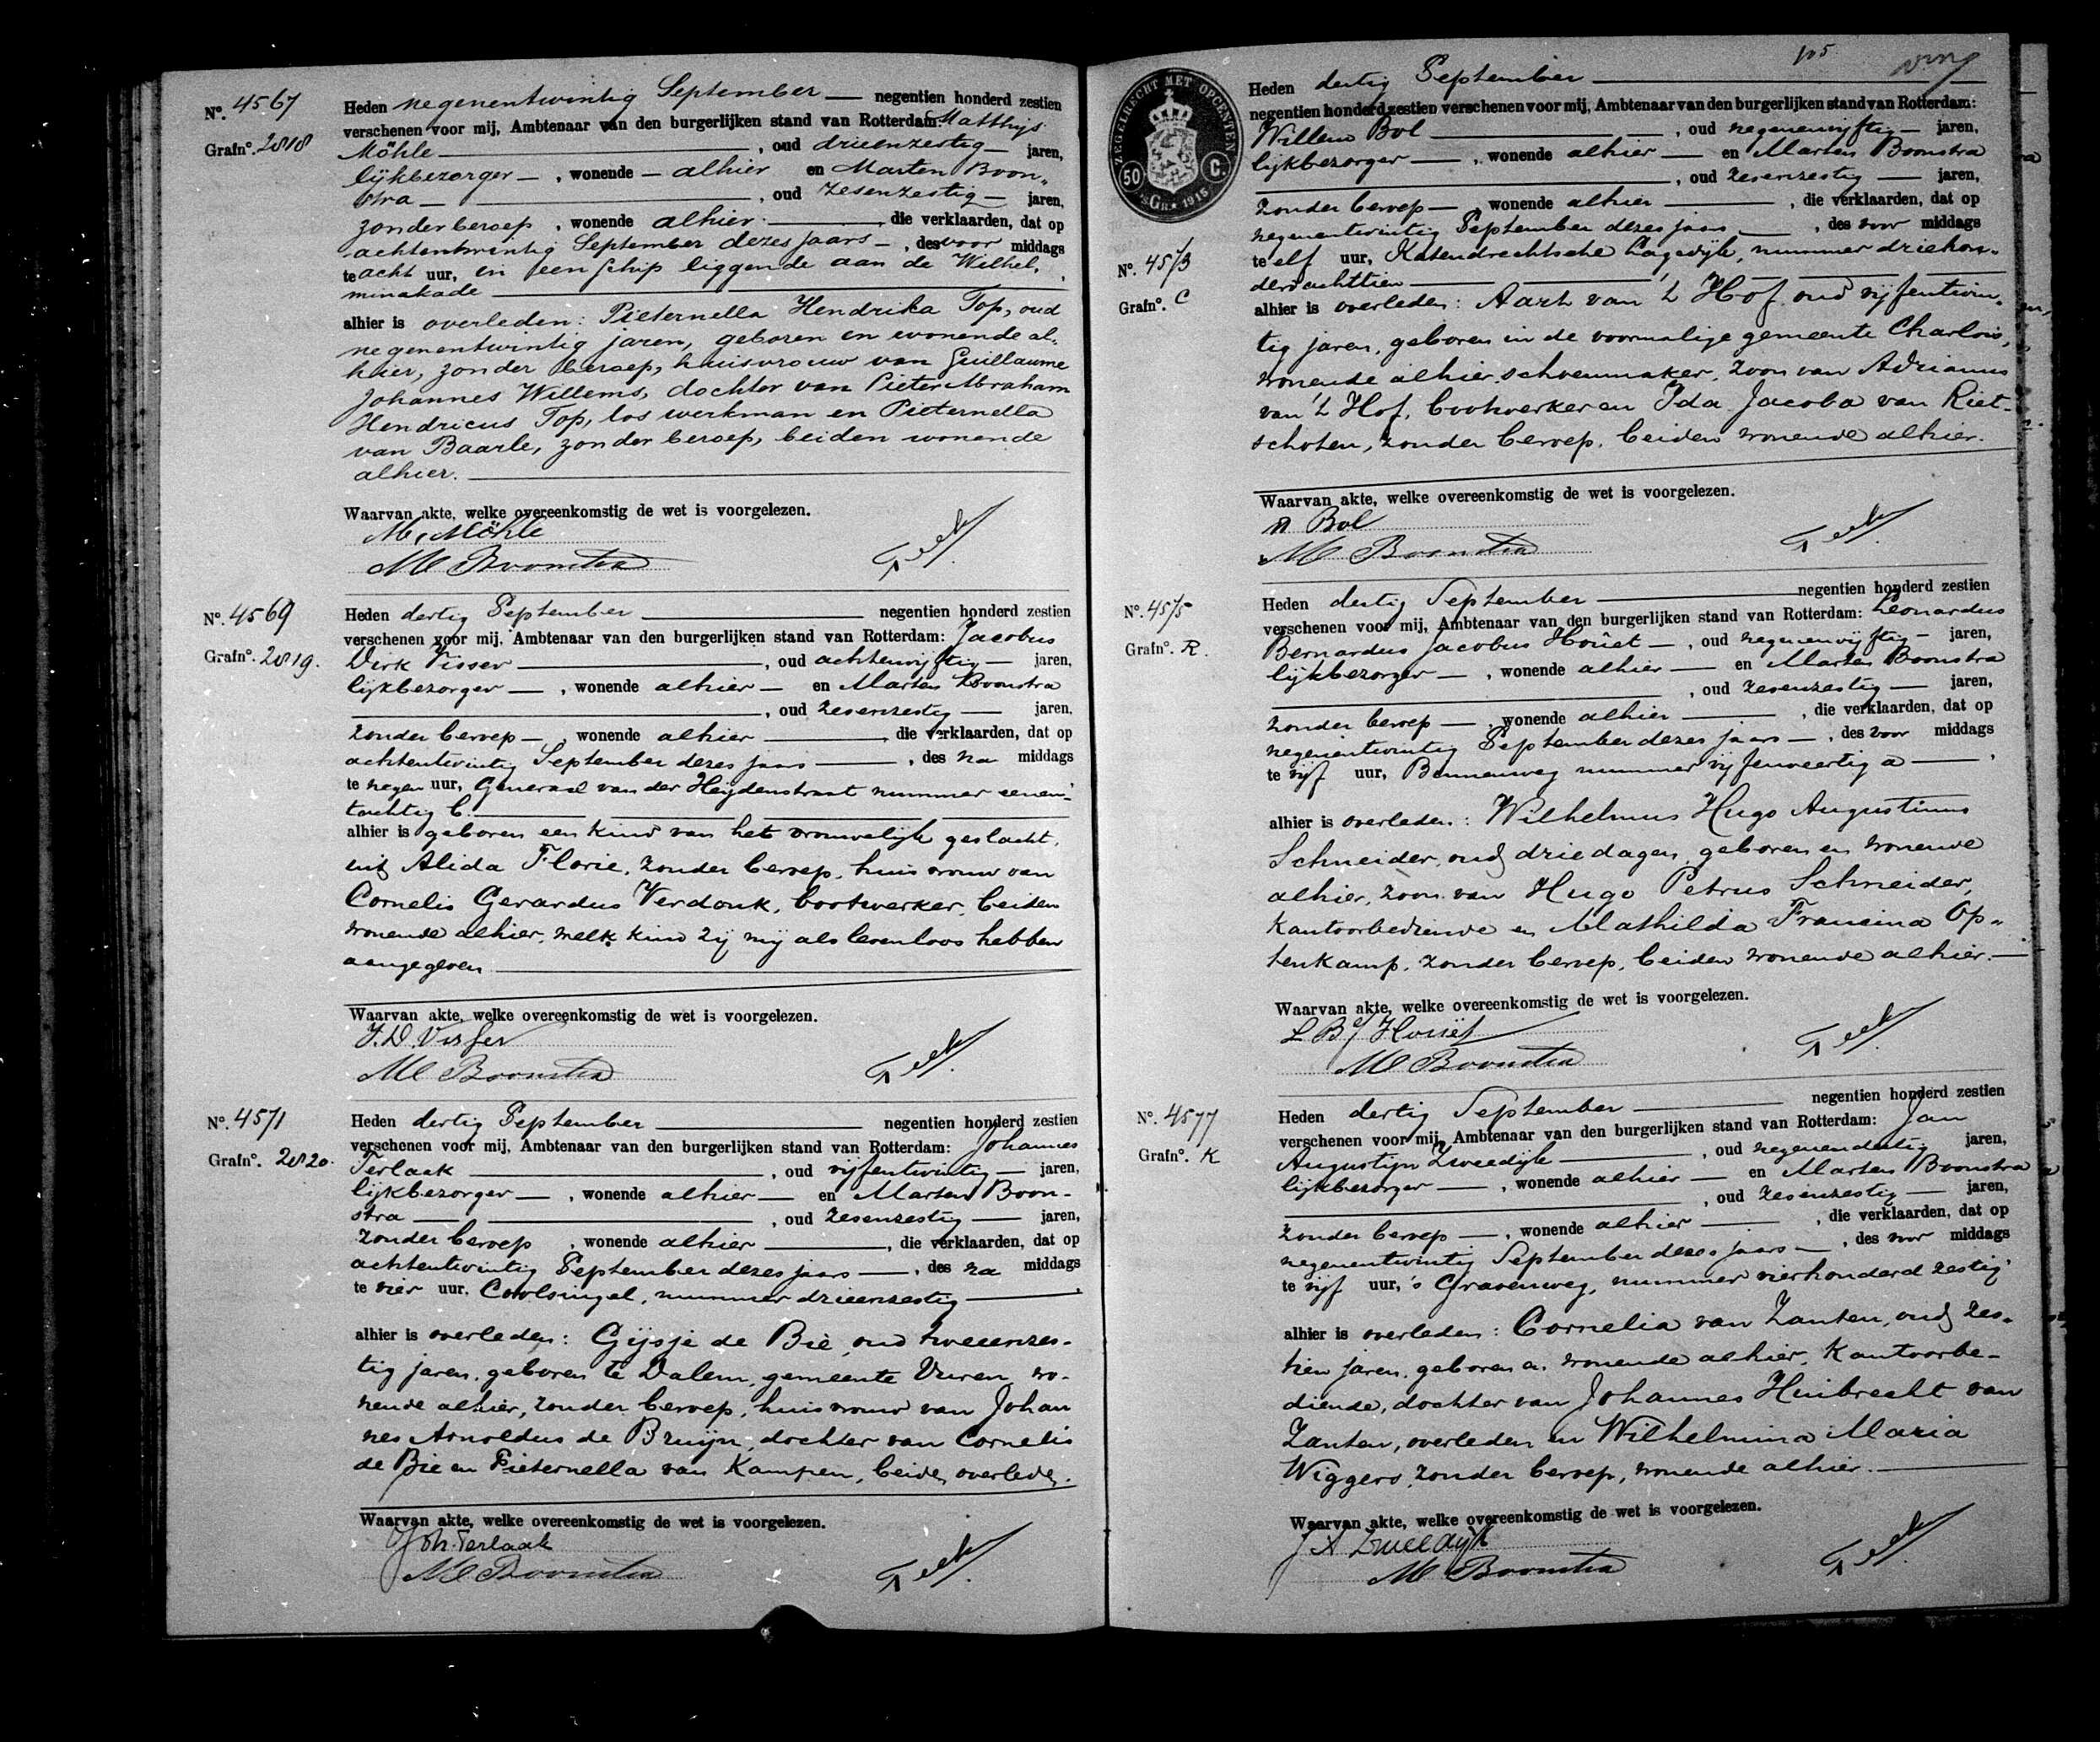 No. 4567
Grafno. 2818
Heden negenentwintig September — negentien honderd zestien
verschenen voor mij, Ambtenaar van den burgerlijken stand van Rotterdam: Matthijs
Möhle —, oud drieenzestig — jaren,
lijkbezorger —, wonende — alhier en Marten Boon-
stra —, oud zesenzestig — jaren,
zonder beroep, wonende alhier — die verklaarden, dat op
achtentwintig September dezes jaars —, des voor middags
te acht uur, in een schip liggende aan de Wilhel-
minakade —
alhier is overleden: Pieternella Hendrika Top, oud
negenentwintig jaren, geboren en wonende al-
hier, zonder beroep, huisvrouw van Guillaume
Johannes Willems, dochter van Pieter Abraham
Hendricus Top, los werkman en Pieternella
van Baarle, zonder beroep, beiden wonende
alhier. —
Waarvan akte, welke overeenkomstig de wet is voorgelezen.
M. Möhle
M Boonstra
No. 4569
Grafno. 2819.
Heden dertig September — negentien honderd zestien
verschenen voor mij, Ambtenaar van den burgerlijken stand van Rotterdam: Jacobus
Dirk Visser —, oud achtenvijftig — jaren,
lijkbezorger —, wonende alhier — en Marten Boonstra
—, oud zesenzestig — jaren,
zonder beroep —, wonende alhier —, die verklaarden, dat op
achtentwintig September dezes jaars —, des na middags
te negen uur, Generaal van der Heijdenstraat nummer eenen-
tachtig C. —
alhier is geboren een kind van het vrouwelijk geslacht,
uit Alida Florie, zonder beroep, huisvrouw van
Cornelis Gerardus Verdonk, bootwerker, beiden
wonende alhier, welk kind zij mij als levenloos hebben
aangegeven —
Waarvan akte, welke overeenkomstig de wet is voorgelezen.
J. D. Visser
M Boonstra
No. 4571
Grafno. 2820.
Heden dertig September — negentien honderd zestien
verschenen voor mij, Ambtenaar van den burgerlijken stand van Rotterdam: Johannes
Terlaak —, oud vijfentwintig — jaren,
lijkbezorger —, wonende alhier — en Marten Boon-
stra —, oud zesenzestig — jaren,
zonder beroep, wonende alhier —, die verklaarden, dat op
achtentwintig September dezes jaars —, des na middags
te vier uur, Coolsingel, nummer drieenzestig —
alhier is overleden: Gijsje de Bie, oud tweeenzes-
tig jaren, geboren te Dalem, gemeente Vuren, wo-
nende alhier, zonder beroep, huisvrouw van Johan
nes Arnoldus de Bruijn, dochter van Cornelis
de Bie en Pieternella van Kampen, beiden overleden.
Waarvan akte, welke overeenkomstig de wet is voorgelezen.
Joh. Terlaak
M Boonstra
105
ZEGELRECHT MET OPCENTEN
50 C.
'sGR. 1915
No. 4573
Grafno. C
Heden dertig September —
negentien honderd zestien verschenen voor mij, Ambtenaar van den burgerlijken stand van Rotterdam:
Willem Bol —, oud negenenvijftig — jaren,
lijkbezorger —, wonende alhier — en Marten Boonstra
—, oud zesenzestig — jaren,
zonder beroep —, wonende alhier —, die verklaarden, dat op
negenentwintig September dezes jaars —, des voor middags
te elf uur, Katendrechtsche Lagedijk, nummer driehon-
derd achttien —
alhier is overleden: Aart van 't Hof, oud vijfentwin-
tig jaren, geboren in de voormalige gemeente Charlois,
wonende alhier, schoenmaker, zoon van Adrianus
van 't Hof, bootwerker en Ida Jacoba van Riet-
schoten, zonder beroep, beiden wonende alhier.
Waarvan akte, welke overeenkomstig de wet is voorgelezen.
W Bol
M Boonstra
No. 4575
Grafno. R.
Heden dertig September — negentien honderd zestien
verschenen voor mij, Ambtenaar van den burgerlijken stand van Rotterdam: Leonardus
Bernardus Jacobus Houët —, oud negenenvijftig — jaren,
lijkbezorger —, wonende alhier — en Marten Boonstra
—, oud zesenzestig — jaren,
zonder beroep —, wonende alhier —, die verklaarden, dat op
negenentwintig September dezes jaars —, des voor middags
te vijf uur, Binnenweg nummer vijfenveertig a —,
alhier is overleden: Wilhelmus Hugo Augustinus
Schneider, oud drie dagen, geboren en wonende
alhier, zoon van Hugo Petrus Schneider,
kantoorbediende en Mathilda Francina Op-
tenkamp, zonder beroep, beiden wonende alhier. —
Waarvan akte, welke overeenkomstig de wet is voorgelezen.
L B J Houët
M Boonstra
No. 4577
Grafno. K
Heden dertig September — negentien honderd zestien
verschenen voor mij, Ambtenaar van den burgerlijken stand van Rotterdam: Jan
Augustijn Zweedijk —, oud negenendertig jaren,
lijkbezorger —, wonende alhier — en Marten Boonstra
—, oud zesenzestig — jaren,
zonder beroep —, wonende alhier —, die verklaarden, dat op
negenentwintig September dezes jaars —, des voor middags
te vijf uur, 's Gravenweg, nummer vierhonderd zestig
alhier is overleden: Cornelia van Zanten, oud zes-
tien jaren, geboren en wonende alhier, kantoorbe-
diende, dochter van Johannes Huibrecht van
Zanten, overleden en Wilhelmina Maria
Wiggers, zonder beroep, wonende alhier. —
Waarvan akte, welke overeenkomstig de wet is voorgelezen.
J A Zweedijk
M Boonstra